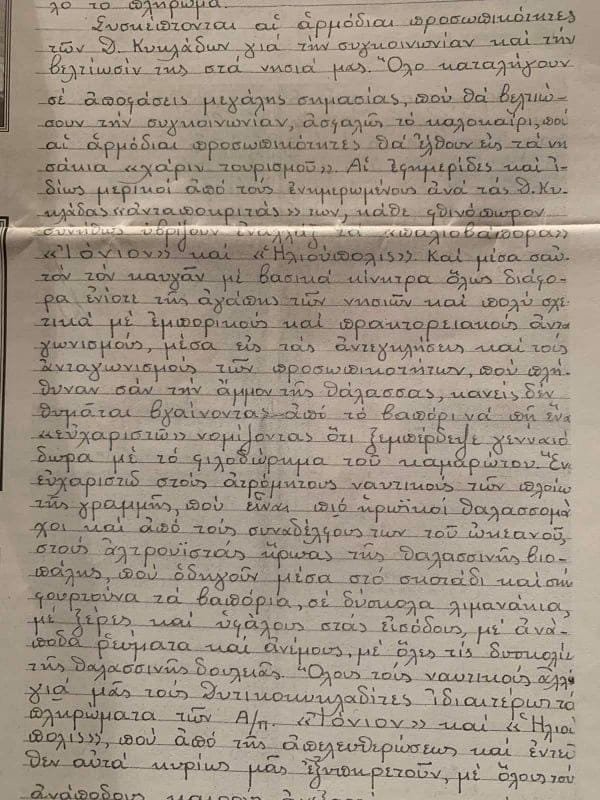 λο το πλήρωμα.
Συσκέπτονται αἱ ἁρμόδιαι προσωπικότητες
τῶν Δ. Κυκλάδων γιά τήν συγκοινωνίαν καί τήν
βελτίωσίν της στά νησιά μας. Ὅλο καταλήγουν
σέ ἀποφάσεις μεγάλης σημασίας, πού θά βελτιώ-
σουν τήν συγκοινωνίαν, ἀσφαλῶς τό καλοκαίρι, πού
αἱ ἁρμόδιαι προσωπικότητες θά ἔλθουν εἰς τά νη
σάκια «χάριν τουρισμοῦ». Αἱ ἐφημερίδες καί ἰ-
δίως μερικοί ἀπό τούς ἐνημερωμένους ἀνά τάς Δ. Κυ-
κλάδας «ἀνταποκριτάς» των, κάθε φθινόπωρον
συνήθως ὑβρίζουν ἐναλλάξ τά «παλιοβάπορα»
«Ἰόνιον» καί «Ἡλιούπολις». Καί μέσα σαὐ-
τόν τόν καυγᾶν μέ βασικά κίνητρα ὅλως διάφο-
ρα ἐνίοτε τῆς ἀγάπης τῶν νησιῶν καί πολύ σχε-
τικά μέ ἐμπορικούς καί πρακτορειακούς ἀντα
γωνισμούς, μέσα εἰς τάς ἀντεγκλήσεις καί τούς
ἀνταγωνισμούς τῶν προσωπικοτήτων, πού πλή-
θυναν σάν τήν ἄμμον τῆς θάλασσας, κανείς δέν
θυμᾶται βγαίνοντας ἀπό τό βαπόρι νά πῆ ἕνα
«εὐχαριστῶ» νομίζοντας ὅτι ξεμπέρδεψε γενναιό
δωρα μέ τό φιλοδώρημα τοῦ καμαρώτου. Ἕν
εὐχαριστῶ στούς ἀτρόμητους ναυτικούς τῶν πλοίω
τῆς γραμμῆς, πού εἶναι πιό ἡρωϊκοί θαλασσομά
χοι καί ἀπό τούς συναδέλφους των τοῦ ὠκεανοῦ,
στούς ἀλτρουϊστάς ἥρωας τῆς θαλασσινῆς βιο-
πάλης, πού ὁδηγοῦν μέσα στό σκοτάδι καί στή
φουρτούνα τά βαπόρια, σέ δύσκολα λιμανάκια,
μέ ξέρες καί ὑφάλους στάς εἰσόδους, μέ ἀνά-
ποδα ρεύματα καί ἀνέμους, μέ ὅλες τίς δυσκολίε
τῆς θαλασσινῆς δουλειᾶς. Ὅλους τούς ναυτικούς ἀλλά
γιά μᾶς τούς Δυτικοκυκλαδίτες ἰδιαιτέρως τά
πληρώματα τῶν Α/π. «Ἰόνιον» καί «Ἡλιού
πολις», πού ἀπό τῆς ἀπελευθερώσεως καί ἐντεῦ
θεν αὐτά κυρίως μᾶς ἐξυπηρετοῦν, μέ ὅλους τού
ἀνάποδους καιρούς